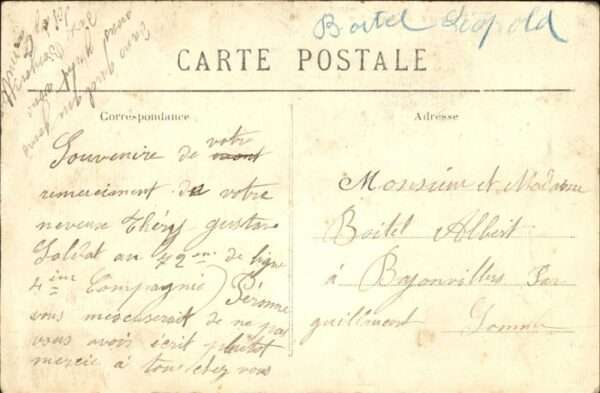 Boitel Léopold
CARTE POSTALE
Correspondance
Adresse
Souvenire de votre
remerciment de votre
neveux Théry gustave
Soldat au 72eme de ligne
4eme Compagnie Péronne
vous mescuserait de ne pas
vous avoir écrit plutot
mercie à tous chez vous
Monsieur et Madame
Boitel Albert
à Bayonvillers Par
guillaucourt Somme